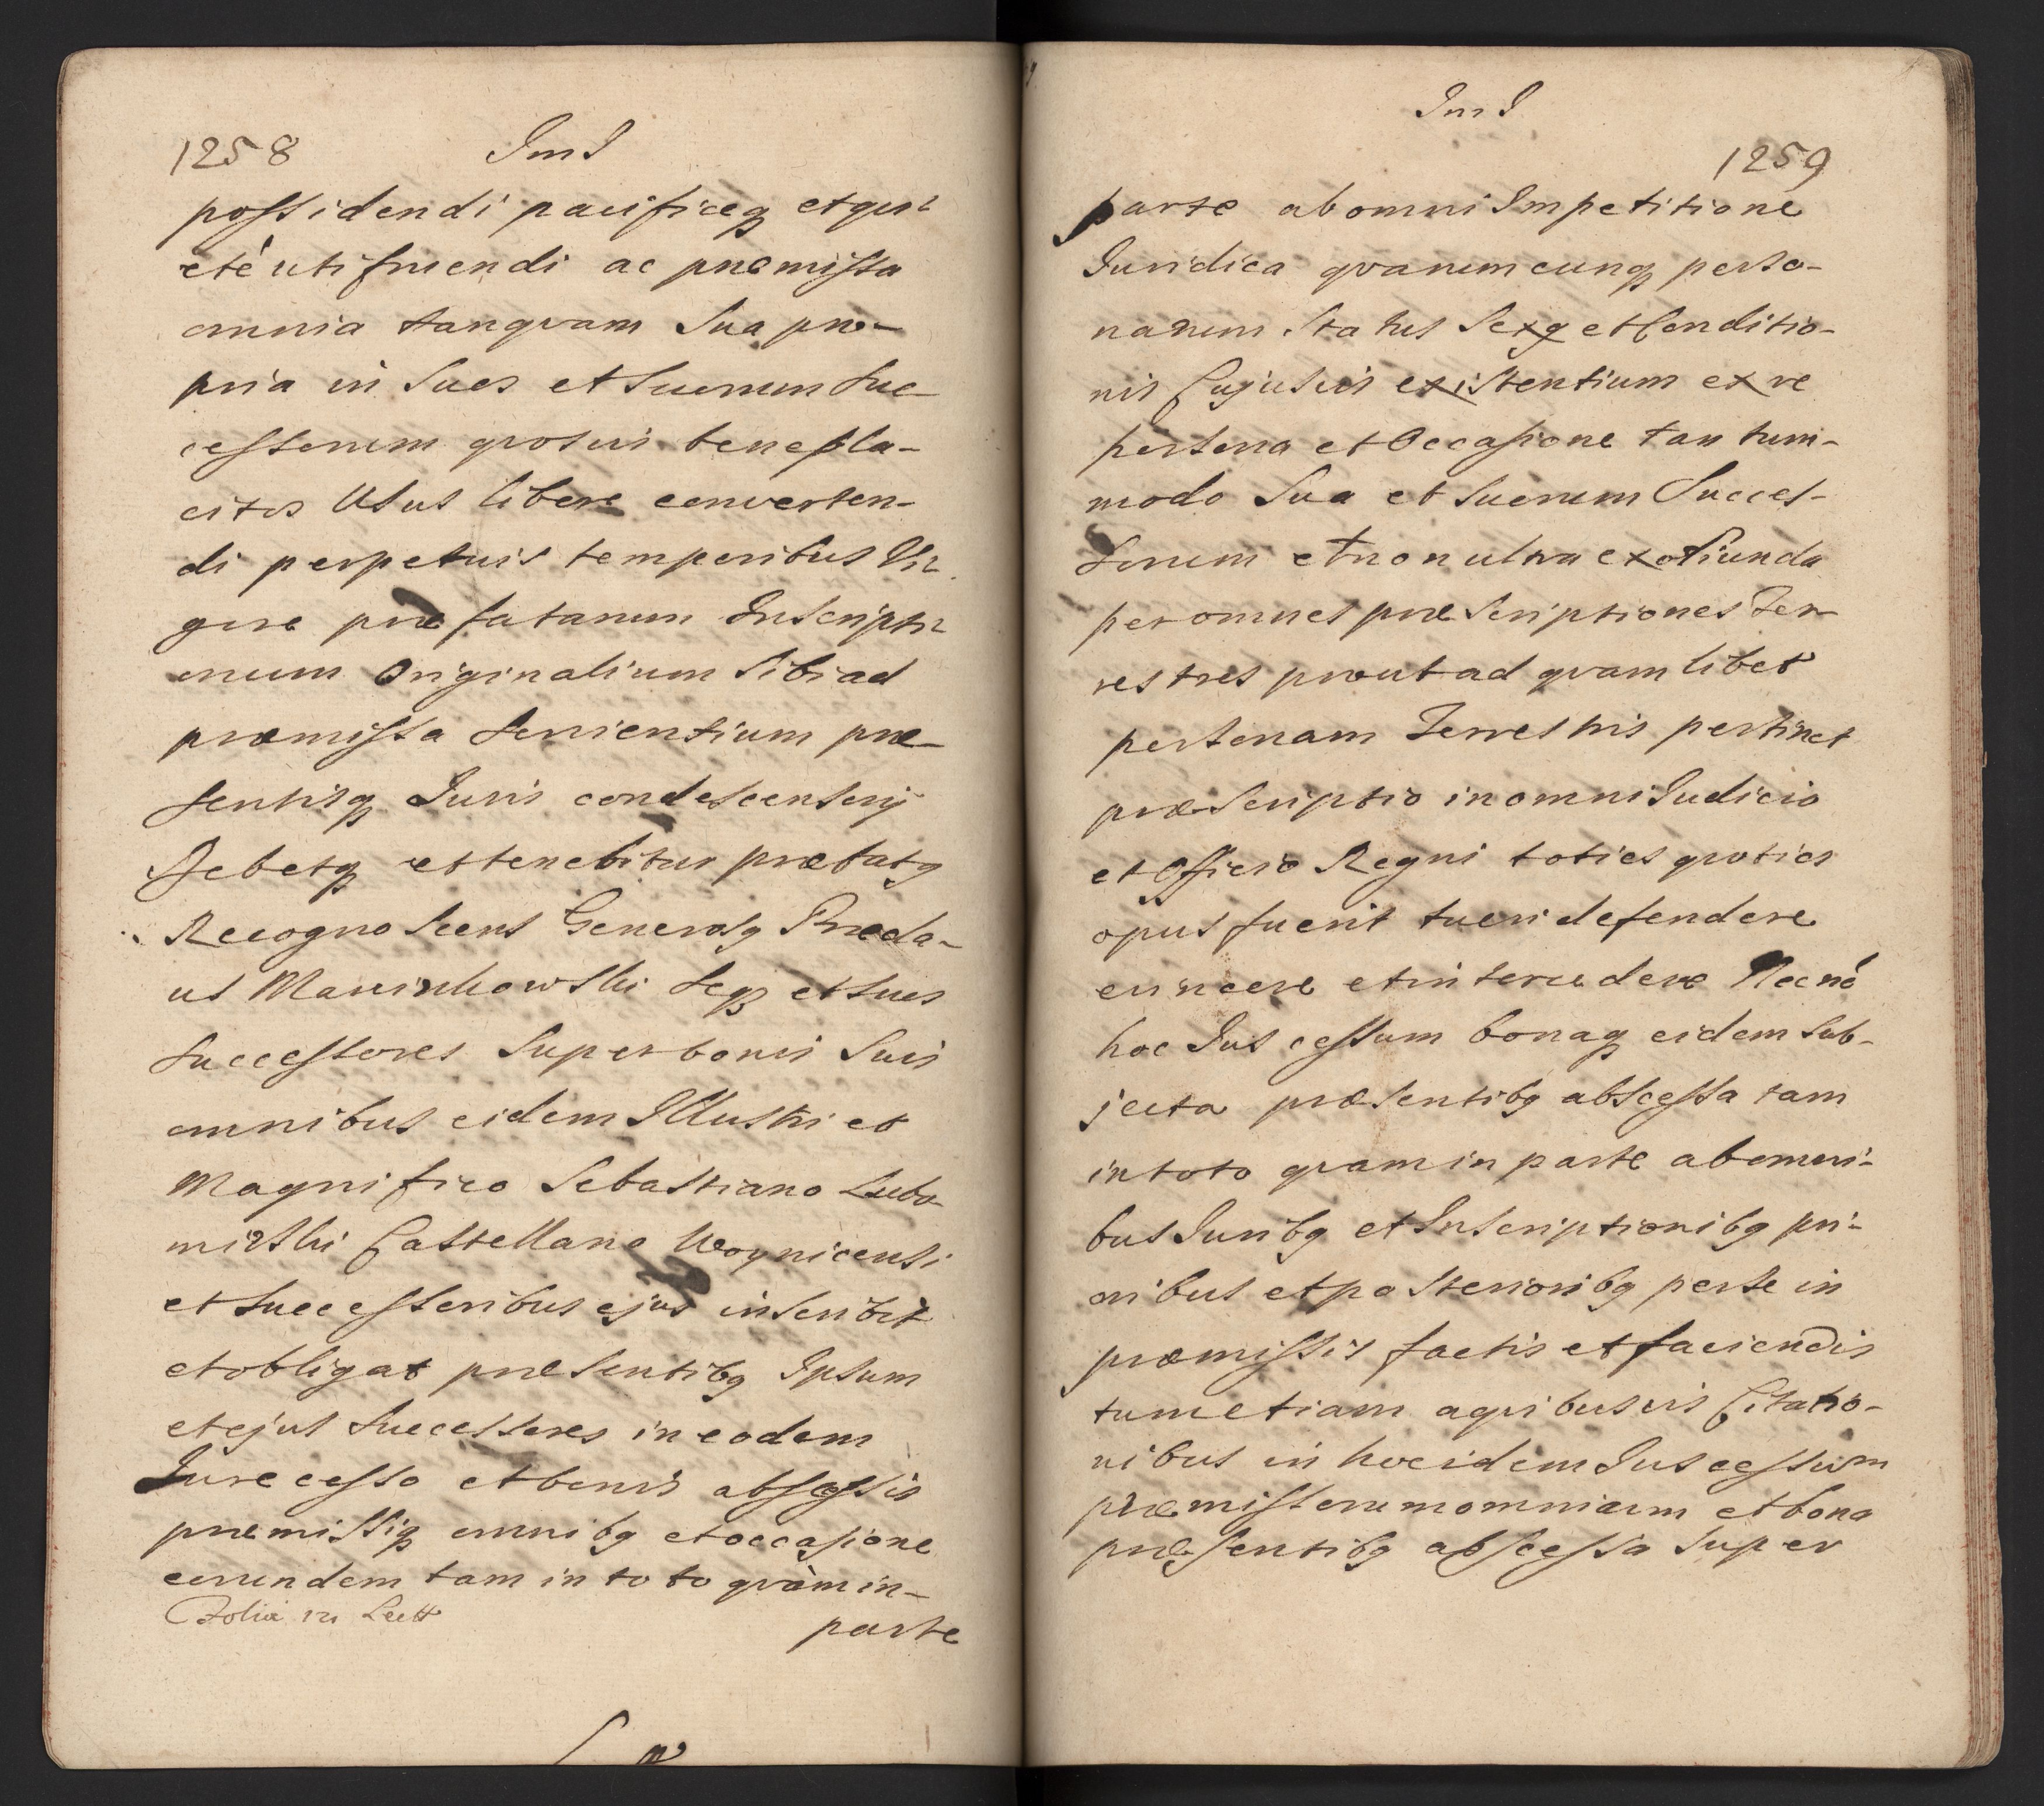 1258 Im I
possidendi pacificeq etqui
eté utifruendi ac præmissa
omnia tanqvam Sua pro-
pria in Suos et Suorum Suc-
cessorum qvosvis benepla-
citos Usus libere converten-
di perpetuis temporibus Vi
gore præfatarum Inscripti
onum Originalium Sibi ad
præmissa Servientium præ-
sentisq Juris condescensorij
Debetq et tenebitur præfatg
Recognoscens Generosg Præda-
us Seq et Suos
Successores Super bonis Suis
omnibus eidem Illustri et
Magnifico Sebastiano Lubo-
mirski Castellano Woynicensi
et Successoribus ejus inscribit
et obligat præsentibg Ipsum
et ejus Successores in eodem
Jure cesso et bonis abscessis
præmissiq omnibg et occasione
eorundem tam in toto qvàm in-
parte
Im I
1259
parte ab omni Impetitione
Juridica qvarumcunq perso-
narum Status Sexg et Conditio-
nis Cujusvis existentium ex re
persona et Occasione tantum-
modo Sua et Suorum Succes-
sorum et non ultra exotiunda
per omnes præscriptiones Ter-
restres prout ad qvamlibet
personam Terrestris pertinet
præscriptio in omni Judicio
et Officio Regni toties qvoties
opus fuerit tueri defendere
evincere et intercedere Necnō
hoc Jus cessum bonaq eidem Sub-
jecta præsentibg abscessa tam
in toto qvam in parte ab omni-
bus Juribg et Inscriptionibg pri-
oribus et posterioribg per se in
præmissis factis et faciendis
tum etiam aqvibusvis Citatio-
nibus in hoc idem Jus cessum
præmissorum omnium et bona
præsentibg abscessa Super